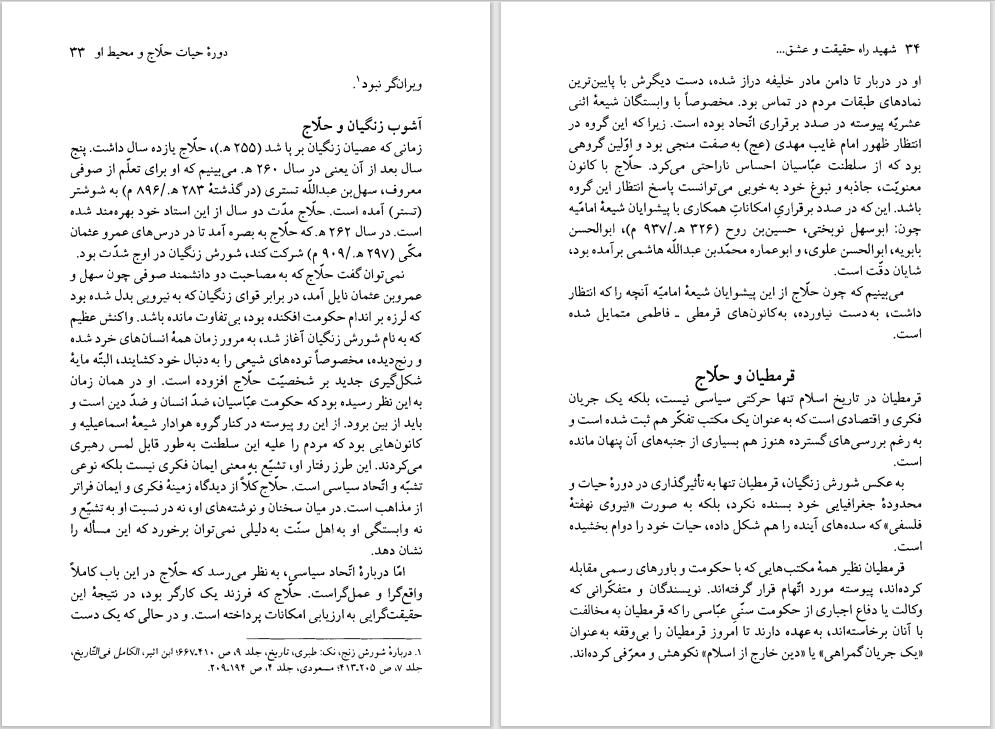 دورهٔ حیات حلّاج و محیط او ۳۳
ویران‌گر نبود۱.
آشوب زنگیان و حلّاج
زمانی که عصیان زنگیان بر پا شد (۲۵۵ ه‍.)، حلّاج یازده سال داشت. پنج
سال بعد از آن یعنی در سال ۲۶۰ ه‍. می‌بینیم که او برای تعلّم از صوفی
معروف، سهل‌بن عبداللّه تستری (درگذشتهٔ ۲۸۳ ه‍./۸۹۶ م) به شوشتر
(تستر) آمده است. حلّاج مدّت دو سال از این استاد خود بهره‌مند شده
است. در سال ۲۶۲ ه‍. که حلّاج به بصره آمد تا در درس‌های عمرو عثمان
مکّی (۲۹۷ ه‍./۹۰۹ م) شرکت کند، شورش زنگیان در اوج شدّت بود.
نمی‌توان گفت حلّاج که به مصاحبت دو دانشمند صوفی چون سهل و
عمروبن عثمان نایل آمد، در برابر قوای زنگیان که به نیرویی بدل شده بود
که لرزه بر اندام حکومت افکنده بود، بی‌تفاوت مانده باشد. واکنش عظیم
که به نام شورش زنگیان آغاز شد، به مرور زمان همهٔ انسان‌های خرد شده
و رنج‌دیده، مخصوصاً توده‌های شیعی را به دنبال خود کشانید، البتّه مایهٔ
شکل‌گیری جدید بر شخصیّت حلّاج افزوده است. او در همان زمان
به این نظر رسیده بود که حکومت عبّاسیان، ضدّ انسان و ضدّ دین است و
باید از بین برود. از این رو پیوسته در کنار گروه هوادار شیعهٔ اسماعیلیه و
کانون‌هایی بود که مردم را علیه این سلطنت به‌طور قابل لمس رهبری
می‌کردند. این طرز رفتار او، تشیّع به معنی ایمان فکری نیست بلکه نوعی
تشبّه و اتّحاد سیاسی است. حلّاج کلاً از دیدگاه زمینهٔ فکری و ایمان فراتر
از مذاهب است. در میان سخنان و نوشته‌های او، نه در نسبت او به تشیّع و
نه وابستگی او به اهل سنّت به دلیلی نمی‌توان برخورد که این مسأله را
نشان دهد.
امّا دربارهٔ اتّحاد سیاسی، به نظر می‌رسد که حلّاج در این باب کاملاً
واقع‌گرا و عمل‌گراست. حلّاج که فرزند یک کارگر بود، در نتیجهٔ این
حقیقت‌گرایی به ارزیابی امکانات پرداخته است. و در حالی که یک دست
۱. دربارهٔ شورش زنج، نک: طبری، تاریخ، جلد ۹، ص ۴۱۰ـ۶۶۷؛ ابن اثیر، الکامل فی‌التّاریخ،
جلد ۷، ص ۲۰۵ـ۴۱۳؛ مسعودی، جلد ۴، ص ۱۹۴ـ۲۰۹.
۳۴ شهید راه حقیقت و عشق...
او در دربار تا دامن مادر خلیفه دراز شده، دست دیگرش با پایین‌ترین
نمادهای طبقات مردم در تماس بود. مخصوصاً با وابستگان شیعهٔ اثنی
عشریّه پیوسته در صدد برقراری اتّحاد بوده است. زیرا که این گروه در
انتظار ظهور امام غایب مهدی (عج) به صفت منجی بود و اوّلین گروهی
بود که از سلطنت عبّاسیان احساس ناراحتی می‌کرد. حلّاج با کانون
معنویّت، جاذبه و نبوغ خود به خوبی می‌توانست پاسخ انتظار این گروه
باشد. این‌که در صدد برقراریِ امکاناتِ همکاری با پیشوایان شیعهٔ امامیّه
چون: ابوسهل نوبختی، حسین‌بن روح (۳۲۶ ه‍./۹۳۷ م)، ابوالحسن
بابویه، ابوالحسن علوی، و ابوعماره محمّدبن عبداللّه هاشمی برآمده بود،
شایان دقّت است.
می‌بینیم که چون حلّاج از این پیشوایان شیعهٔ امامیّه آنچه را که انتظار
داشت، به دست نیاورده، به کانون‌های قرمطی ـ فاطمی متمایل شده
است.
قرمطیان و حلّاج
قرمطیان در تاریخ اسلام تنها حرکتی سیاسی نیست، بلکه یک جریان
فکری و اقتصادی است که به عنوان یک مکتب تفکّر هم ثبت شده است و
به رغم بررسی‌های گسترده هنوز هم بسیاری از جنبه‌های آن پنهان مانده
است.
به عکس شورش زنگیان، قرمطیان تنها به تأثیرگذاری در دورهٔ حیات و
محدودهٔ جغرافیایی خود بسنده نکرد، بلکه به صورت «نیروی نهفتهٔ
فلسفی» که سده‌های آینده را هم شکل داده، حیات خود را دوام بخشیده
است.
قرمطیان نظیر همهٔ مکتب‌هایی که با حکومت و باورهای رسمی مقابله
کرده‌اند، پیوسته مورد اتّهام قرار گرفته‌اند. نویسندگان و متفکّرانی که
وکالت یا دفاع اجباری از حکومت سنّیِ عبّاسی را که قرمطیان به مخالفت
با آنان برخاسته‌اند، به عهده دارند تا امروز قرمطیان را بی‌وقفه به عنوان
«یک جریان گمراهی» یا «دین خارج از اسلام» نکوهش و معرّفی کرده‌اند.